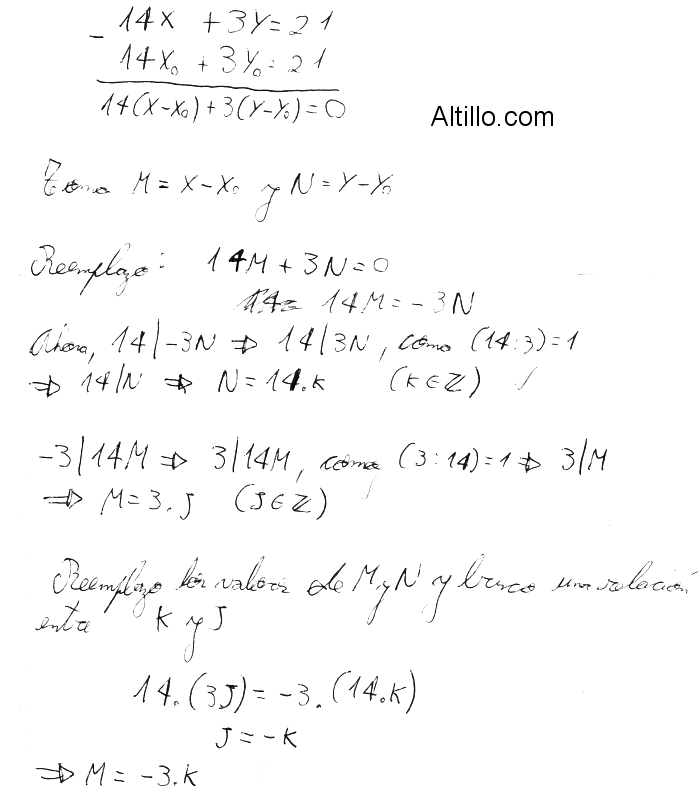 - 14X + 3Y = 21
14X₀ + 3Y₀ = 21
14(X-X₀) + 3(Y-Y₀) = 0
Altillo.com
Tomo M = X-X₀ y N = Y-Y₀
Reemplazo: 14M + 3N = 0
14M = -3N
Ahora, 14|-3N ⇒ 14|3N, como (14:3)=1
⇒ 14|N ⇒ N = 14.K (K∈ℤ)
-3|14M ⇒ 3|14M, como (3:14)=1 ⇒ 3|M
⇒ M = 3.J (J∈ℤ)
Reemplazo los valores de M y N y busco una relación
entre K y J
14.(3J) = -3.(14.K)
J = -K
⇒ M = -3.K